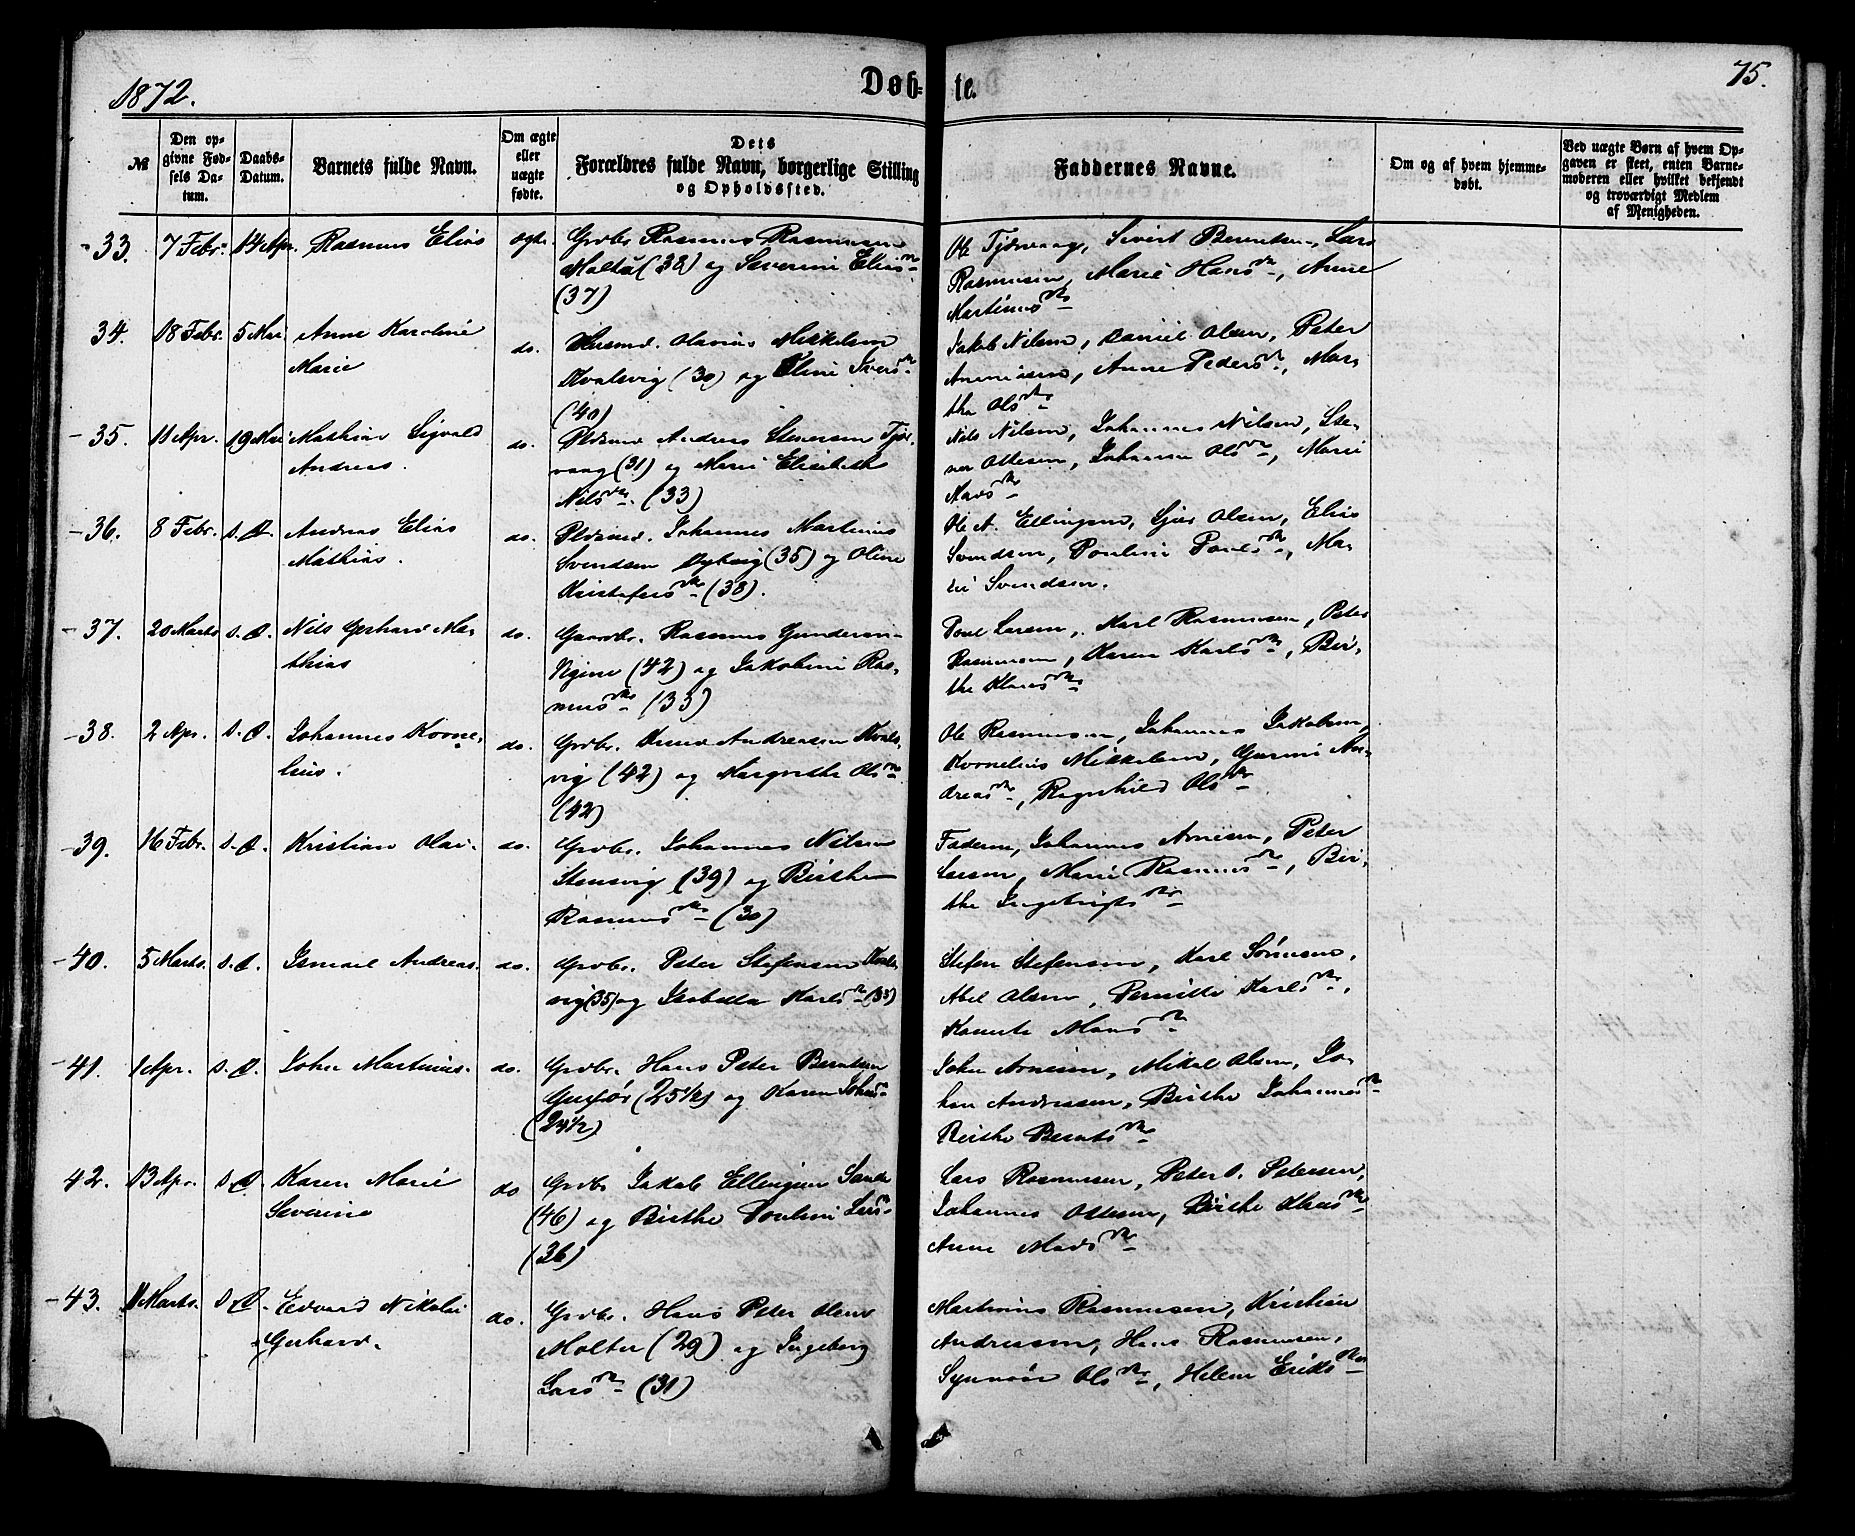 1872.
Døb-
te.
75.
№
Den op-
givne Fød-
sels Da-
tum.
Daabs-
Datum.
Barnets fulde Navn.
Om ægte
eller
uægte
fødte.
Dets
Forældres fulde Navn, borgerlige Stilling
og Opholdssted.
Faddernes Navne.
Om og af hvem hjemme-
døbt.
Ved uægte Børn af hvem Op-
gaven er skeet, enten Barne-
moderen eller hvilket bekjendt
og troværdigt Medlem
af Menigheden.
33. 7 Febr. 14 Apr. Rasmus Elias ægte. Grdbr. Rasmus Rasmussen
Moltu (38) og Severine Elias dtr
(37)
Ole Tjørvaag, Sivert Berentsen, Lars
Rasmussen, Marie Hans dtr, Anne
Martinus dtr
34. 18 Febr. 5 Mai. Anne Karoline
Marie
do. Husmd. Olavus Mikkelsen
Kvalsvig (30) og Eline Ivers dtr
(40)
Jakob Nilsen, Daniel Olsen, Peter
Arnesen, Anne Peders dtr, Mar-
the Ols dtr
35. 11 Apr. 19 Mai. Mathias Sigvald
Andreas.
do. Pldsmd. Andreas Stenersen Tjør-
vaag (31) og Marie Elisabeth
Nils dtr. (33)
Nils Nilsen, Johannes Nilsen, Ste-
ner Ottesen, Johanna Ols dtr, Marie
Mads dtr
36. 8 Febr. s. D. Andreas Elias
Mathias.
do. Pldsmd. Johannes Martinus
Svendsen Dybvig (35) og Oline
Kristofers dtr (38).
Ole A. Ellingsen, Gjer Olsen, Elias
Svendsen, Pouline Pouls dtr, Ma-
Svendsen.
37. 20 Marts s. D. Nils Gerhard Ma-
thias
do. Gaardbr. Rasmus Gundersen
(42) og Jakobine Ras-
mus dtr (33)
Poul Larsen, Karl Rasmussen, Peter
Rasmussen, Karen Karls dtr, Bir-
the Klaus dtr
38. 2 Apr. s. D. Johannes Korne-
lius.
do. Grdbr. Knud Andreassen Kvals-
vig (42) og Margrethe Ols dtr
(42)
Ole Rasmussen, Johannes Jakobsen,
Kornelius Mikkelsen, Gurine An-
dreas dtr, Ragnhild Ols dtr
39. 16 Febr. s. D. Kristian Olai. do. Grdbr. Johannes Nilsen
Stensvig (39) og Birthe
Rasmus dtr (30)
Faderen, Johannes Arnesen, Peter
Larsen, Marie Rasmus dtr, Bir-
the Ingebrigts dtr
40. 5 Marts. s. D. Ismael Andreas. do. Grdbr. Peter Stefensen Kvals-
vig (35) og Isabella Karls dtr (33)
Stefen Stefensen, Karl Sørensen,
Abel Olsen, Pernille Karls dtr,
Hans dtr
41. 1 Apr. s. D. Johan Martinus. do. Grdbr. Hans Peter Berntsen
Gurskø (25½) og Karen Johans dtr
(24½)
John Arnesen, Mikal Olsen, Jo-
han Andreassen, Birthe Johannes dtr
Birthe Bernts dtr
42. 13 Apr. s. D. Karen Marie
Severine
do Grdbr Jakob Ellingsen Sande
(46) og Birthe Pouline Lars dtr
(36)
Lars Rasmussen, Peter O. Petersen,
Johannes Ottesen, Birthe Klaus dtr
Anne Mads dtr
43. 11 Marts. s. D. Edvard Nikolai
Gerhard.
do. Grdbr. Hans Peter Olsen
Moltu (29) og Ingeborg
Lars dtr (31)
Martinus Rasmussen, Kristian
Andreassen, Hans Rasmussen,
Synnøv Ols dtr, Helene Eriks dtr